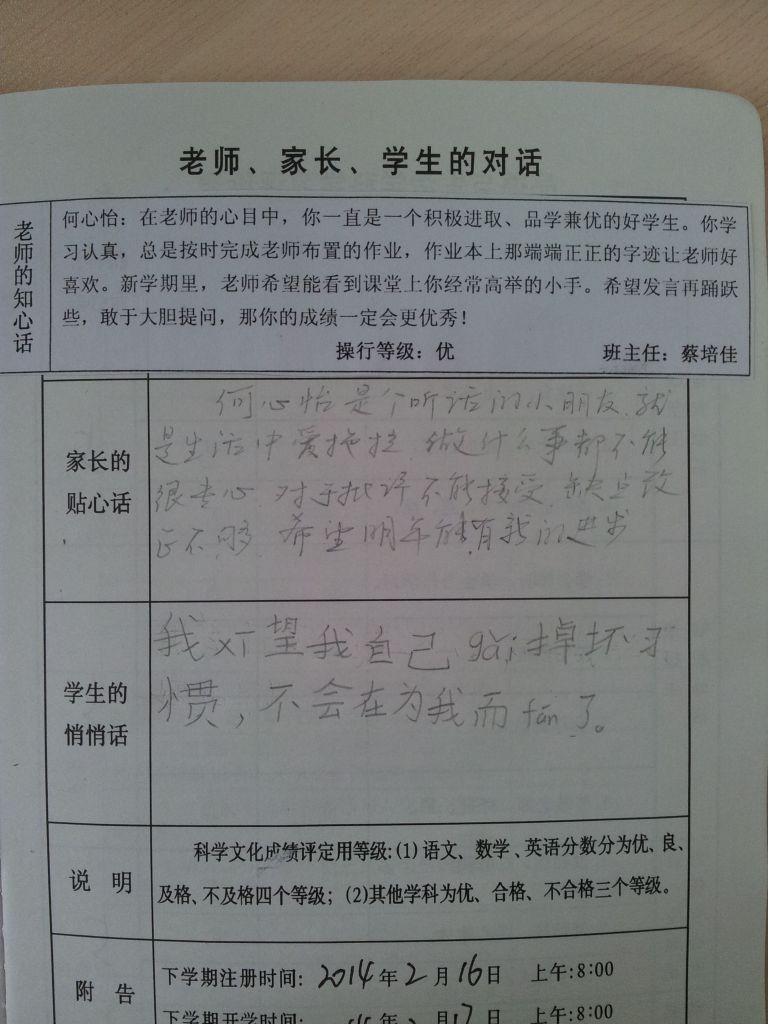 老师、家长、学生的对话
老师的知心话
何心怡：在老师的心目中，你一直是一个积极进取、品学兼优的好学生。你学
习认真，总是按时完成老师布置的作业，作业本上那端端正正的字迹让老师好
喜欢。新学期里，老师希望能看到课堂上你经常高举的小手。希望发言再踊跃
些，敢于大胆提问，那你的成绩一定会更优秀！
操行等级：优 班主任：蔡培佳
家长的
贴心话
何心怡是个听话的小朋友.就
是生活中爱拖拉.做什么事都不能
很专心.对于批评不能接受.缺点改
正不够.希望明年能有新的进步
学生的
悄悄话
我xī望我自己gǎi掉坏习
惯，不会在为我而fán了。
说 明
科学文化成绩评定用等级：(1)语文、数学、英语分数分为优、良、
及格、不及格四个等级；(2)其他学科为优、合格、不合格三个等级。
附 告
下学期注册时间：2014年2月16日 上午：8:00
下学期开学时间： 年2月17日 上午：8:00